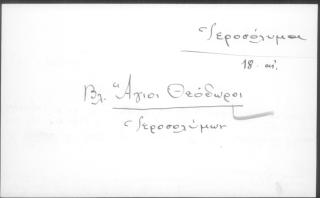 Ἱεροσόλυμα
18. αἰ.
Βλ. Ἅγιοι Θεόδωροι
Ἱεροσολύμων